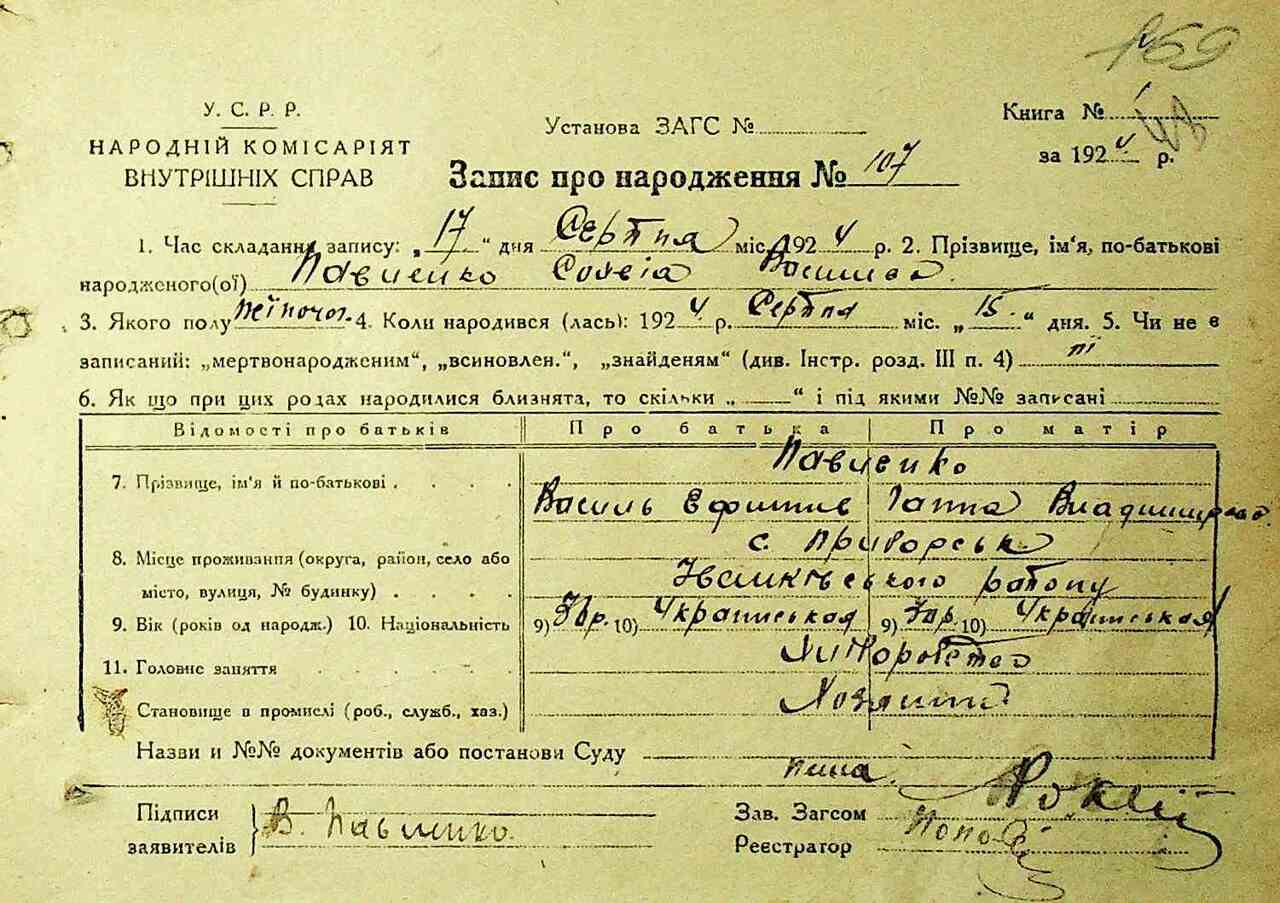 159
У. С. Р. Р.
НАРОДНІЙ КОМІСАРІЯТ
ВНУТРІШНІХ СПРАВ
Установа ЗАГС №
Книга № 1
за 1924 р.
Запис про народження № 107
1. Час складання запису: „17“ дня Серпня міс. 1924 р. 2. Прізвище, ім'я, по-батькові
народженого(ої) Павленко Софія Василева
3. Якого полу жіночої. 4. Коли народився (лась): 1924 р. Серпня міс. „15“ дня. 5. Чи не є
записаний: „мертвонародженим“, „всиновлен.“, „знайденям“ (див. Інстр. розд. III п. 4) ні
6. Як що при цих родах народилися близнята, то скільки „ “ і під якими №№ записані
Відомості про батьків Про батька Про матір
Павленко
7. Прізвище, ім'я й по-батькові
Василь Ефимив Ганна Владимирова
8. Місце проживання (округа, район, село або
місто, вулиця, № будинку)
с.
району
9. Вік (років од народж.) 10. Національність 9) 10) Украинськая 9) 10) Украинськая
11. Головне заняття Хлиборобство
Становище в промислі (роб., служб., хаз.) Хозяини
Назви и №№ документів або постанови Суду
нема.
Підписи
заявителів В. Павленко.
Зав. Загсом
Реєстратор